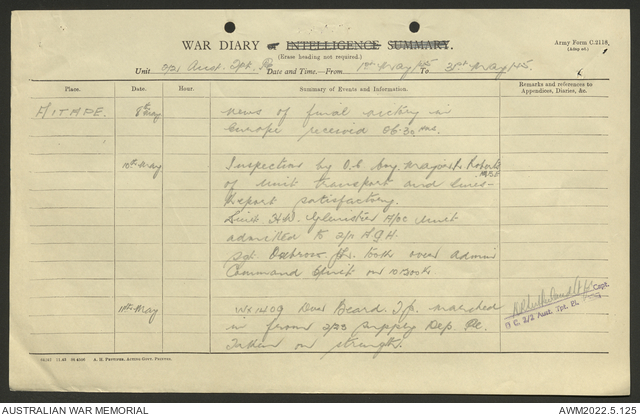 WAR DIARY or INTELLIGENCE SUMMARY.
(Erase heading not required.)
Army Form C.2118.
Unit Aust. Tpt. Pl. Date and Time—From 1st May/45 To 31st May/45.
Place. Date. Hour. Summary of Events and Information. Remarks and references to Appendices, Diaries, &c.
AITAPE. 8th May news of final victory in
Europe received
10th May Inspection by O.C. Coy. Major Roberts
MBE
of unit transport and lines—
Report satisfactory.
Lieut. H.W. O/C Unit
admitted to 2/11 A.G.H.
Sgt. took over admin
Command Unit on
11th May Dvr Beard. marched
in from 2/23 Supply Dep Pl.
Taken on strength.
Capt.
O.C. 2/2 Aust. Tpt. Pl.
A. H. Pettifer, Acting-Govt. Printer.
AUSTRALIAN WAR MEMORIAL
AWM2022.5.125